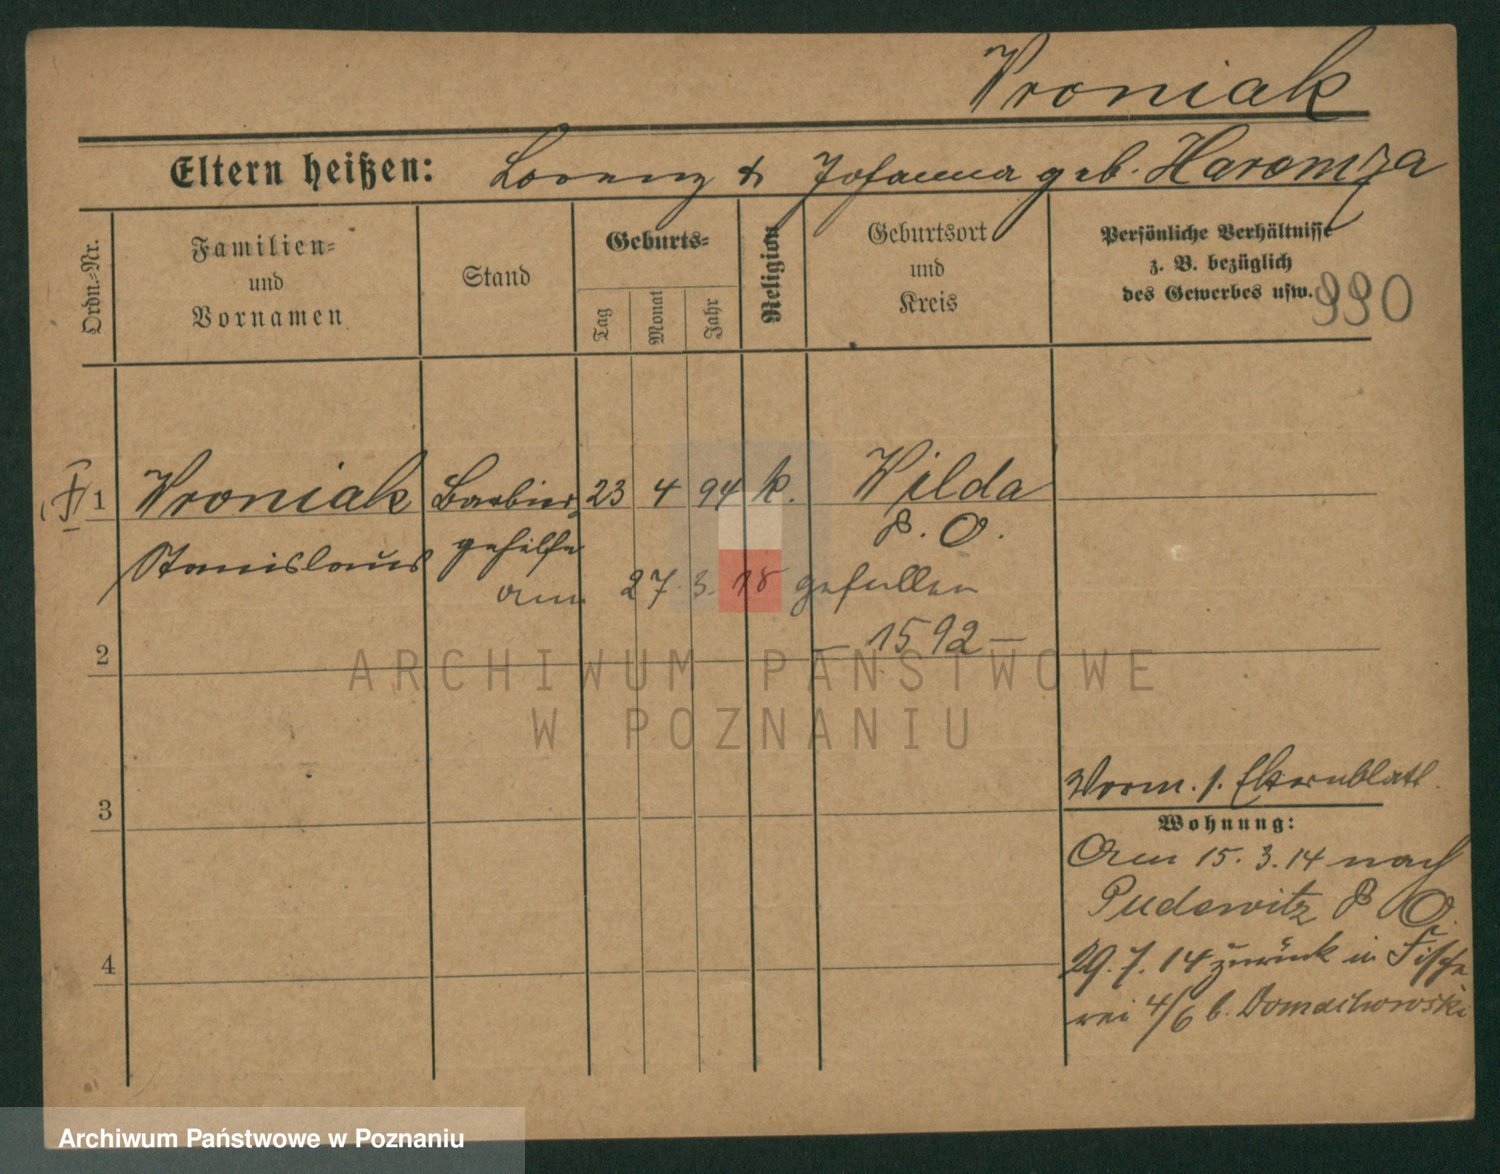 Wroniak
Eltern heißen: Lorenz & Johanna geb. Haromza
Ordn.-Nr.
Familien-
und
Vornamen
Stand
Geburts-
Tag
Monat
Jahr
Religion
Geburtsort
und
Kreis
Persönliche Verhältnisse
z. B. bezüglich
des Gewerbes usw.
980
1 Wroniak Barbier 23 4 94 k. Wilda
Stanislaus gehilfe P. O.
am 27. 3. 18 gefallen
– 1592 –
2
ARCHIWUM PAŃSTWOWE
W POZNANIU
3
Vorm. s. Elternblatt.
Wohnung:
Am 15. 3. 14 nach
Pudewitz P O.
4
29. 7. 14 zurück in Fische
rei 4/6 b. Domachowski
Archiwum Państwowe w Poznaniu